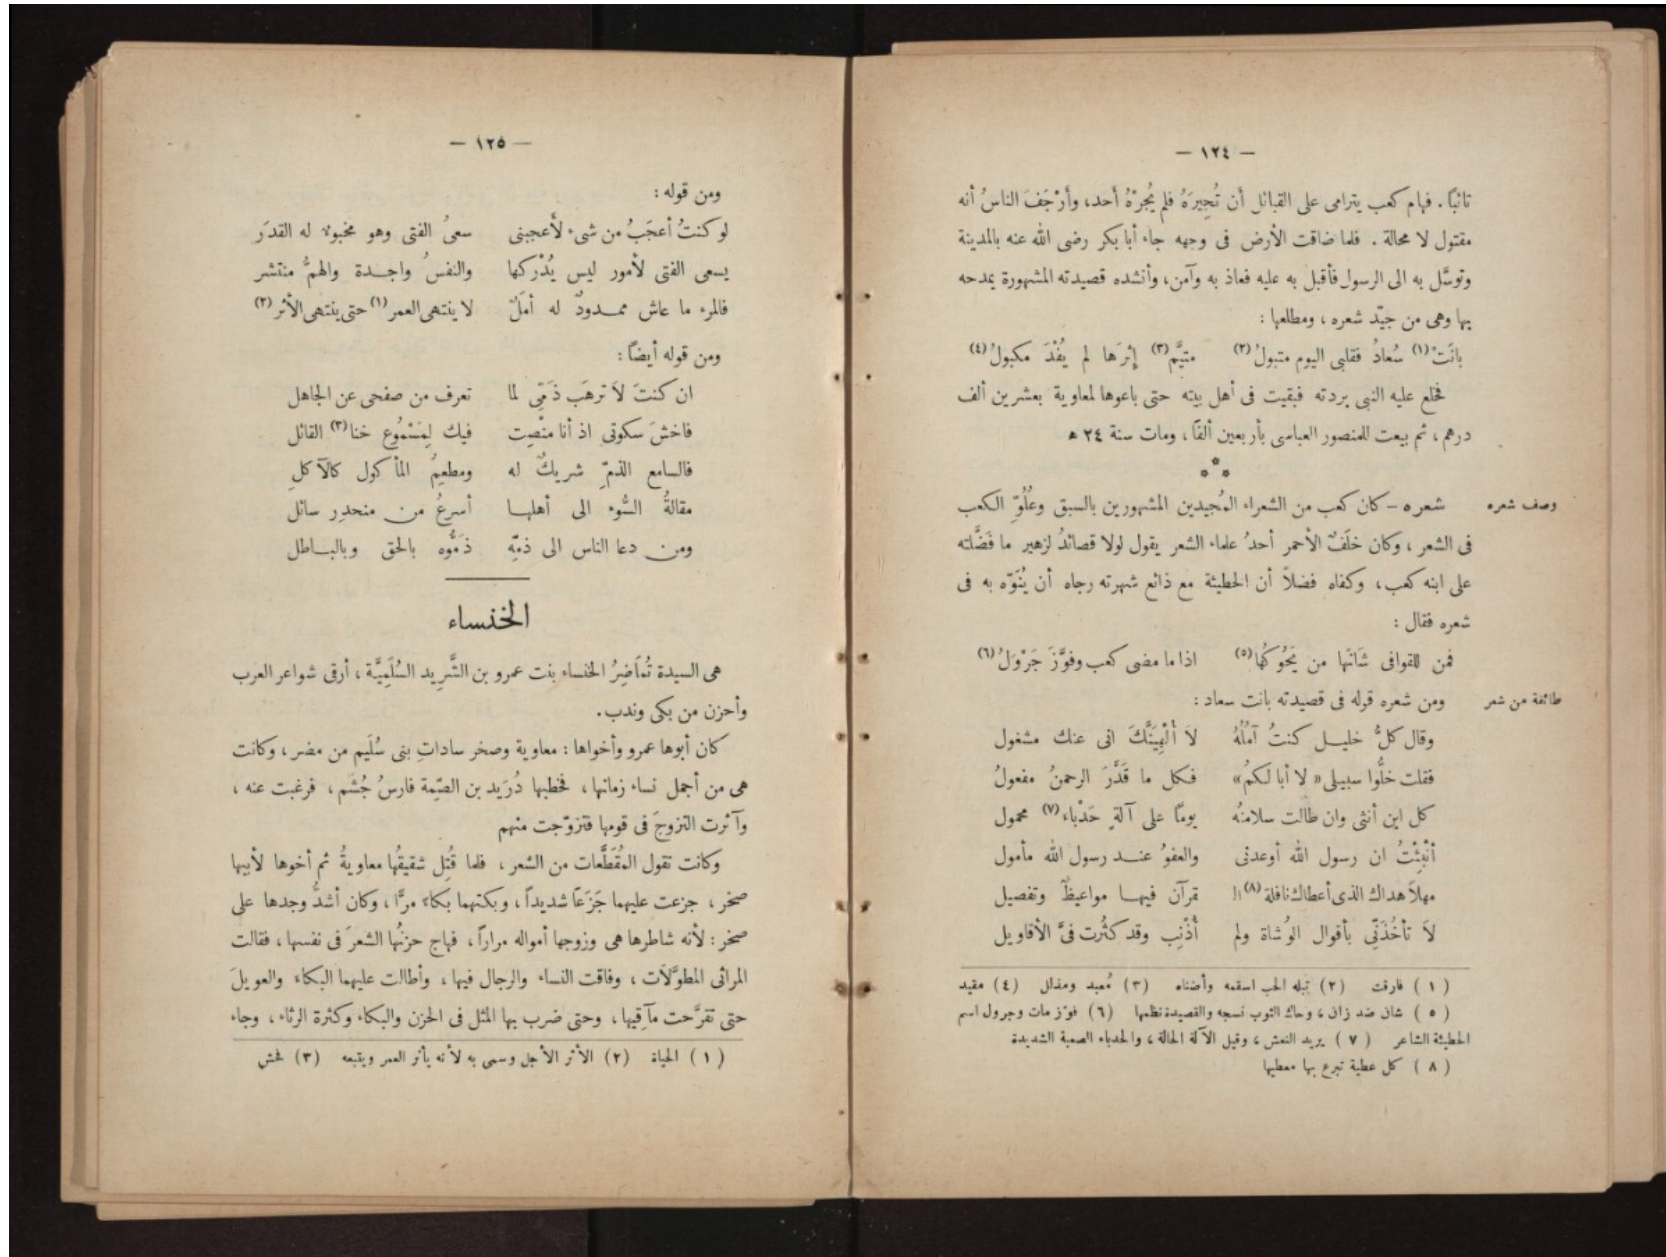 — ١٢٤ —
تائبًا . فهام كعب يترامى على القبائل أن تُجِيرَهُ فلم يُجِرْهُ أحد، وأَرْجَفَ الناسُ أنه
مقتول لا محالة . فلما ضاقت الأرض فى وجهه جاء أبا بكر رضى الله عنه بالمدينة
وتوسَّل به الى الرسول فأقبل به عليه فعاذ به وآمن، وأنشده قصيدته المشهورة يمدحه
بها وهى من جيِّد شعره ، ومطلعها :
بانَتْ (١) سُعادُ فقلبى اليوم متبولُ (٢) متيَّم (٣) إثرَها لم يُفْدَ مكبولُ (٤)
فخلع عليه النبى بردته فبقيت فى أهل بيته حتى باعوها لمعاوية بعشرين ألف
درهم ، ثم بيعت للمنصور العباسى بأربعين ألفًا ، ومات سنة ٢٤ ھ
***
وصف شعره
شعره – كان كعب من الشعراء المُجيدين المشهورين بالسبق وعُلُوِّ الكعب
فى الشعر ، وكان خلَفٌ الأحمر أحدُ علماء الشعر يقول لولا قصائدُ لزهير ما فَضَّلته
على ابنه كعب ، وكفاه فضلاً أن الحطيئة مع ذائع شهرته رجاه أن يُنَوِّه به فى
شعره فقال :
فمن للقوافى شَانَها من يَحُوكُها (٥) اذا ما مضى كعب وفوَّزَ جَرْوَلُ (٦)
طائفة من شعر
ومن شعره قوله فى قصيدته بانت سعاد :
وقال كلُّ خليـــل كنتُ آمُلُهُ لاَ أُلْهِيَنَّكَ انى عنك مشغول
فقلت خلُّوا سبيلى « لا أبا لكمُ » فكل ما قَدَّرَ الرحمنُ مفعولُ
كل ابن أنثى وان طالت سلامتُه يومًا على آلةٍ حَدْباء (٧) محمول
أُنْبِئْتُ ان رسول الله أوعدنى والعفوُ عنـــد رسول الله مأمول
مهلاً هداك الذى أعطاك نافلة (٨) الـ قرآن فيهـــا مواعيظٌ وتفصيل
لاَ تأخُذَنِّى بأقوال الوُشاة ولم أُذْنِب وقد كثُرت فىَّ الأقاويل
( ١ ) فارقت ( ٢ ) تبله الحب اسقمه وأضناه ( ٣ ) مُعبد ومذلل ( ٤ ) مقيد
( ٥ ) شان ضد زان ، وحاك الثوب نسجه والقصيدة نظمها ( ٦ ) فوّز مات وجرول اسم
الحطيئة الشاعر ( ٧ ) يريد النعش ، وقيل الآلة الحالة ، والحدباء الصعبة الشديدة
( ٨ ) كل عطية تبرع بها معطيها
— ١٢٥ —
ومن قوله :
لو كنتُ أعجَبُ من شىء لأعجبنى سعىُ الفتى وهو مخبوء له القدَر
يسعى الفتى لأمور ليس يُدْركها والنفسُ واجـــدة والهمُّ منتشر
فالمرء ما عاش ممـــدودٌ له أملٌ لا ينتهى العمر (١) حتى ينتهى الأثر (٢)
ومن قوله أيضاً :
ان كنتَ لاَ ترهَب ذمّى لما تعرف من صفحى عن الجاهل
فاخشَ سكوتى اذ أنا منْصِت فيك لِمَسْمُوع خنا (٣) القائل
فالسامع الذمِّ شريكٌ له ومطعِمُ المأكول كالآكلِ
مقالةُ السُّوء الى أهلهـــا أسرعُ من منحدِر سائل
ومن دعا الناس الى ذمِّه ذمُّوه بالحق وبالبـــاطل
الخنساء
هى السيدة تُمَاضِرُ الخنساء بنت عمرو بن الشَّرِيد السُلَمِيَّة ، أرقى شواعر العرب
وأحزن من بكى وندب .
كان أبوها عمرو وأخواها : معاوية وصخر ساداتِ بنى سُلَيم من مضر ، وكانت
هى من أجمل نساء زمانها ، فخطبها دُرَيد بن الصِّمة فارسُ جُشَم ، فرغبت عنه ،
وآثرت التزوجَ فى قومها فتزوّجت منهم
وكانت تقول المُقَطَّعات من الشعر ، فلما قُتِل شقيقُها معاويةُ ثم أخوها لأبيها
صخر ، جزعت عليهما جَزَعًا شديداً ، وبكتهما بكاءً مرًّا ، وكان أشدُّ وجدها على
صخر : لأنه شاطرها هى وزوجها أمواله مراراً ، فهاج حزنُها الشعرَ فى نفسها ، فقالت
المراثى المطوَّلاَت ، وفاقت النساء والرجال فيها ، وأطالت عليهما البكاء والعويلَ
حتى تقرَّحت مآقيها ، وحتى ضرب بها المثل فى الحزن والبكاء وكثرة الرثاء ، وجاء
( ١ ) الحياة (٢) الأثر الأجل وسمى به لأنه يأثر العمر ويتبعه ( ٣ ) فحش